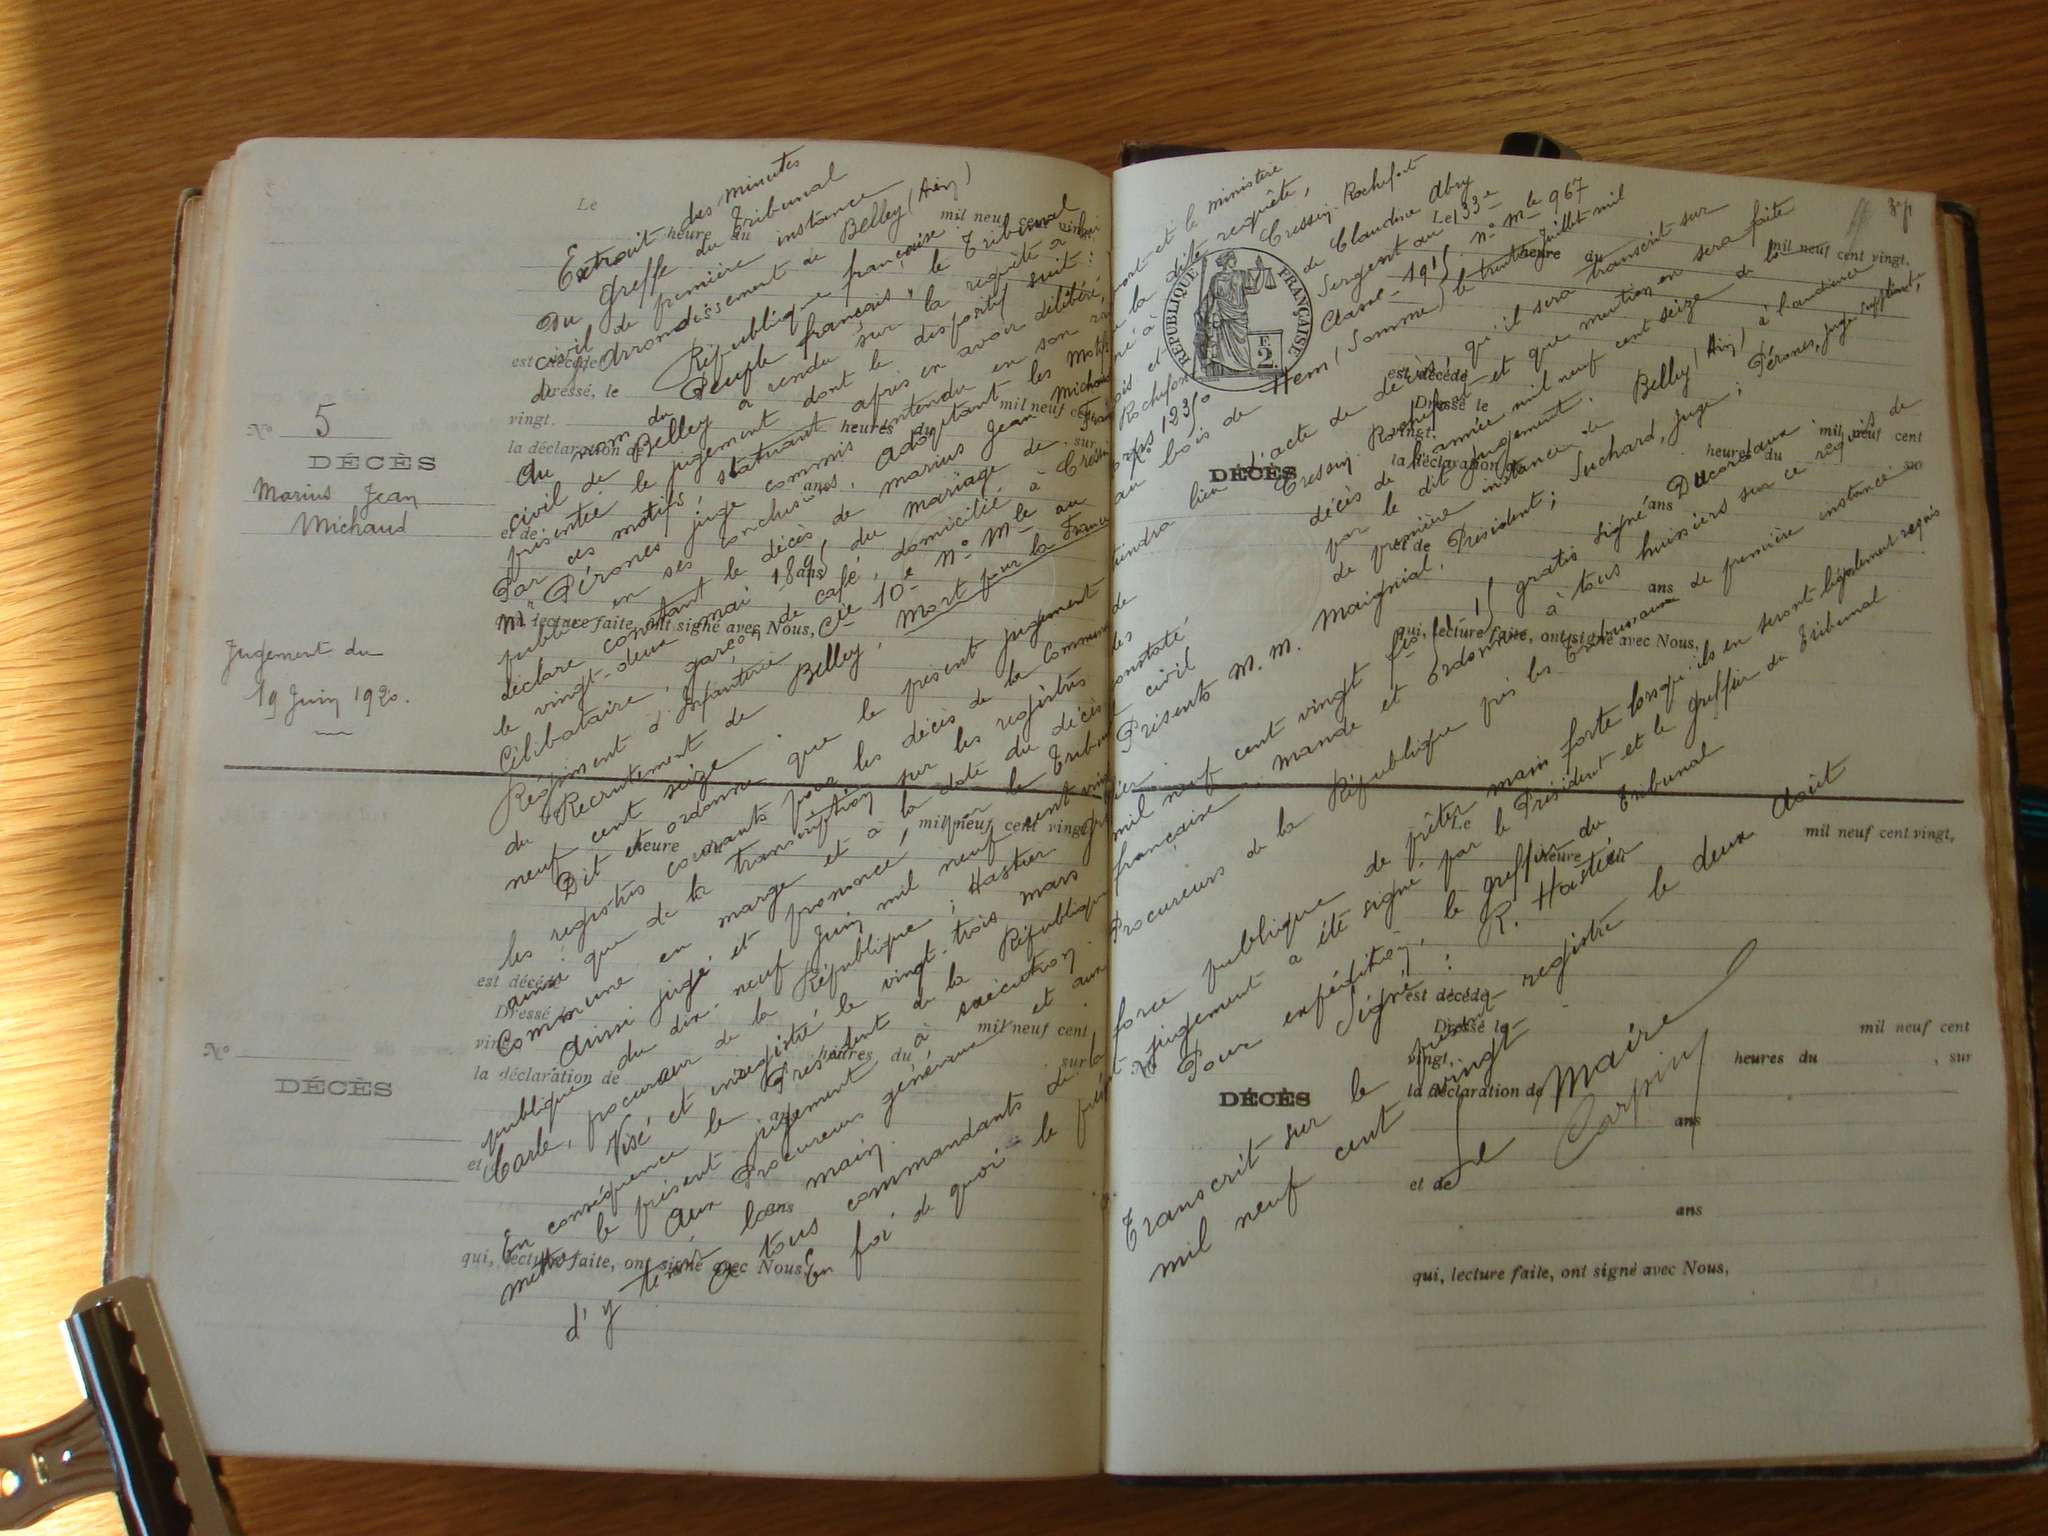 N° 5
DÉCÈS
Marius Jean
Michaud
Jugement du
19 Juin 1920.
Extrait des minutes
du Greffe du Tribunal
civil de première instance
de l'Arrondissement de Belley (Ain)
République française
Au nom du Peuple français, le Tribunal
civil de Belley a rendu sur la requête à lui
présentée le jugement dont le dispositif suit :
Par ces motifs, statuant après en avoir délibéré,
Mr Pérones juge commis entendu en son rapport et le ministère
public en ses conclusions, Adoptant les motifs de la dite requête,
déclare constant le décès de Marius Jean Michaud né à Cressin-Rochefort
le vingt-deux mai 1895 du mariage de François et de Claudine Abry
Célibataire, garçon de café, domicilié à Cressin Rochefort Sergent au 133e
Régiment d'Infanterie Cie 10e No Mle au corps 12350 Classe 1915 no mle 967
du Recrutement de Belley, Mort pour la France au bois de Hem (Somme) le trente Juillet mil
neuf cent seize.
Dit et ordonne que le présent jugement tiendra lieu d'acte de décès, qu'il sera transcrit sur
les registres courants pour les décès de la Commune de Cressin-Rochefort et que mention en sera faite
ainsi que de la transcription sur les registres des décès de l'année mil neuf cent seize de la
Commune en marge et à la date du décès constaté par le dit jugement.
Ainsi jugé et prononcé, par le Tribunal civil de première instance de Belley (Ain) à l'audience
publique du dix neuf Juin mil neuf cent vingt Présents M.M. Maignial, Président ; Juchard, Juge ; Pérones, Juge suppléant,
Carle, procureur de la République ; Hastier greffier.
Visé et enregistré le vingt-trois mars mil neuf cent vingt fo gratis signé Ducordeaux
En conséquence le Président de la République française mande et ordonne à tous huissiers sur ce requis de
mettre le présent jugement à exécution.
Aux Procureurs généraux et aux Procureurs de la République près les Tribunaux de première instance
d'y tenir la main.
A tous commandants de la force publique de prêter main forte lorsqu'ils en seront légalement requis
En foi de quoi le présent jugement a été signé par le Président et le greffier du Tribunal
Pour expédition, le greffier du Tribunal
Signé : R. Hastier
Transcrit sur le présent registre le deux Août
mil neuf cent vingt
Le Maire
Le
heure du mil neuf cent vingt
est décédé
Dressé, le mil neuf cent
vingt. heures du , sur
la déclaration de
ans
et de
ans
qui, lecture faite, ont signé avec Nous,
heure du mil neuf cent vingt,
est décédé
Dressé le mil neuf cent
vingt, heures du , sur
N°
DÉCÈS
la déclaration de
ans
et
ans
qui, lecture faite, ont signé avec Nous,
RÉPUBLIQUE FRANÇAISE
F.
2
Le
heure du mil neuf cent vingt.
est décédé
Dressé le mil neuf cent
vingt. heures du , sur
DÉCÈS
la déclaration
ans
et de
ans
qui, lecture faite, ont signé avec Nous,
Le mil neuf cent vingt,
heure du
est décédé
Dressé le mil neuf cent
vingt, heures du , sur
N°
DÉCÈS
la déclaration de
ans
et de
ans
qui, lecture faite, ont signé avec Nous,